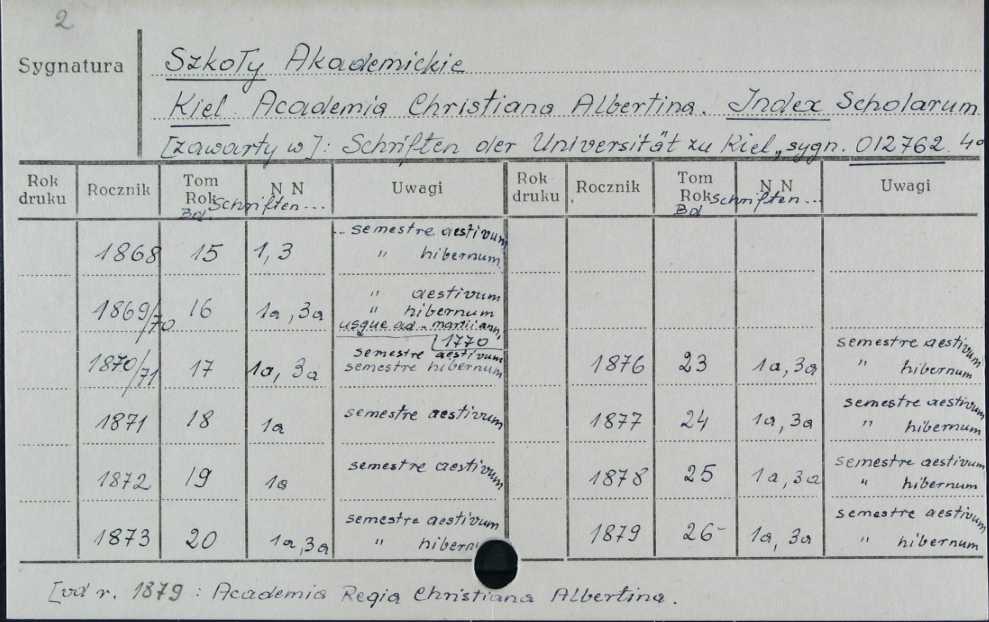 2
Sygnatura
Szkoły Akademickie
Kiel Academia Christiana Albertina. Index Scholarum
[zawarty w]: Schriften der Universität zu Kiel, sygn. 012762. 40
Rok druku Rocznik Tom Rok N N Uwagi Rok druku Rocznik Tom Rok N N Uwagi
Bd Schriften... Bd Schriften...
1868 15 1, 3 semestre aestivum
" hibernum
1869/70 16 1a, 3a " aestivum
" hibernum
usque ad martii ann,
1770
1870/71 17 1a, 3a semestre aestivum
semestre hibernum
1871 18 1a semestre aestivum
1872 19 1a semestre aestivum
1873 20 1a, 3a semestre aestivum
" hibernu
1876 23 1a, 3a semestre aestivum
" hibernum
1877 24 1a, 3a semestre aestivum
" hibernum
1878 25 1a, 3a semestre aestivum
" hibernum
1879 26 1a, 3a semestre aestivum
" hibernum
[od r. 1879 : Academia Regia Christiana Albertina.